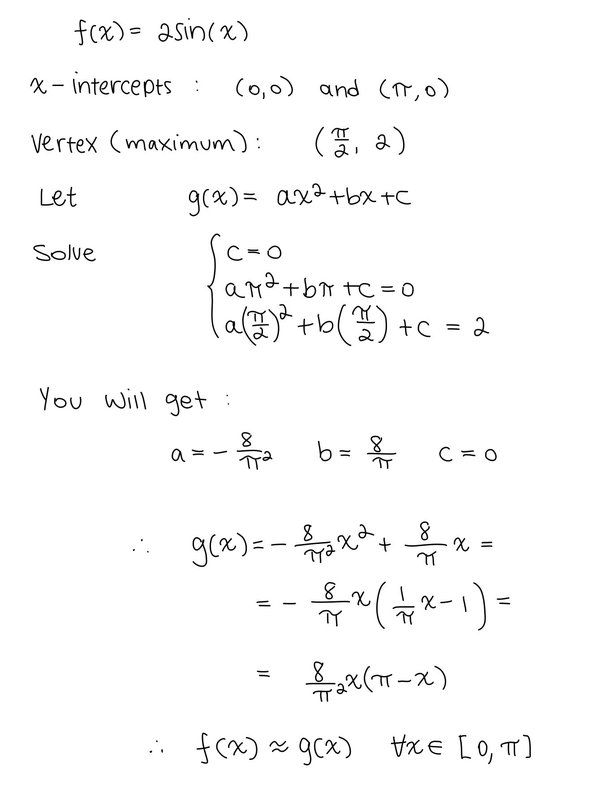 f(x) = 2sin(x)
x-intercepts : (0,0) and (π,0)
Vertex (maximum) : (π/2, 2)
Let g(x) = ax²+bx+c
Solve { c=0
aπ²+bπ+c=0
a(π/2)²+b(π/2)+c = 2
You will get :
a = -8/π² b = 8/π c = 0
∴ g(x) = -8/π² x² + 8/π x =
= - 8/π x (1/π x - 1) =
= 8/π² x(π-x)
∴ f(x) ≈ g(x) ∀x ∈ [0,π]